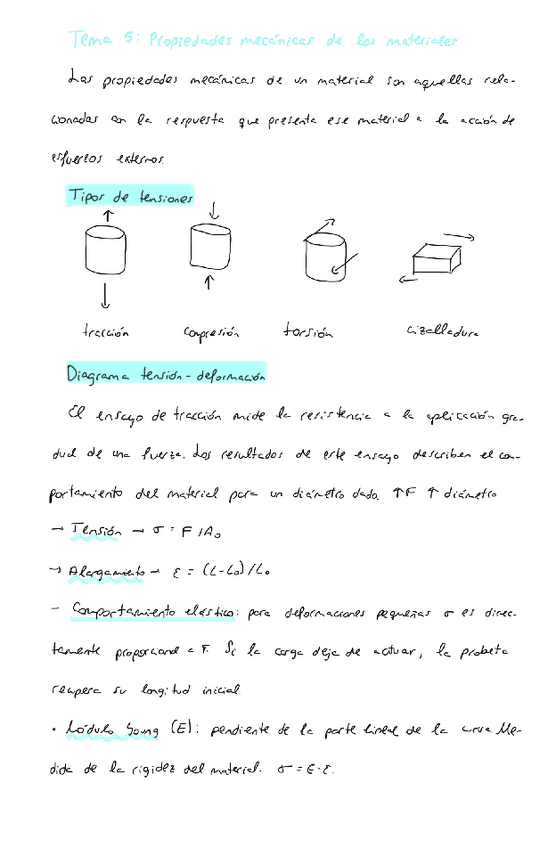 Tema 5: Propiedades mecánicas de los materiales
Las propiedades mecánicas de un material son aquellas rela-
cionadas con la respuesta que presenta ese material a la acción de
esfuerzos externos.
Tipos de tensiones
tracción compresión torsión cizalladura
Diagrama tensión-deformación
El ensayo de tracción mide la resistencia a la aplicación gra-
dual de una fuerza. Los resultados de este ensayo describen el com-
portamiento del material para un diámetro dado. ↑F ↑ diámetro
→ Tensión → σ = F/A₀
→ Alargamiento → ε = (L-L₀)/L₀
- Comportamiento elástico: para deformaciones pequeñas σ es direc-
tamente proporcional a F. Si la carga deja de actuar, la probeta
recupera su longitud inicial.
· Módulo Young (E): pendiente de la parte lineal de la curva. Me-
dida de la rigidez del material. σ = E·ε.